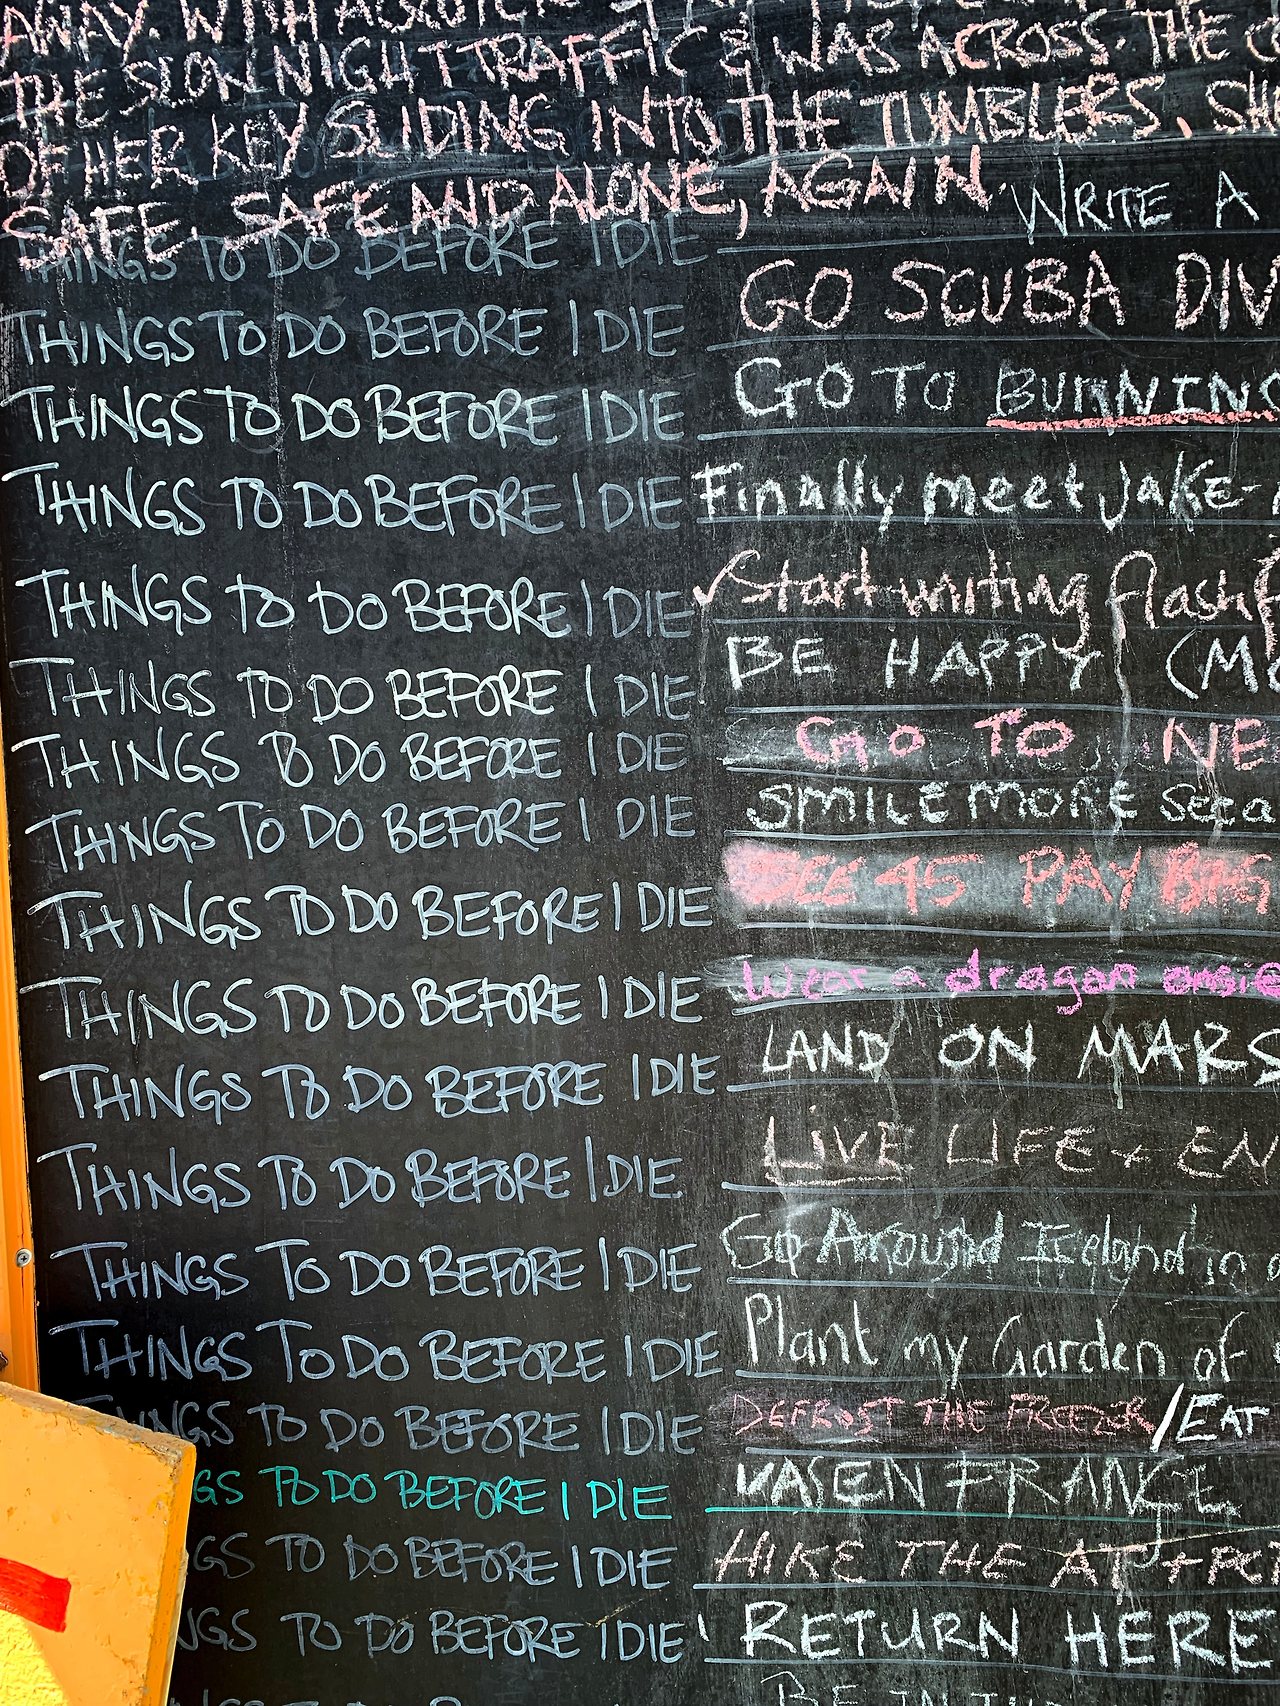 AWAY. WITH
THE SLOW NIGHT TRAFFIC & WAS ACROSS. THE
OF HER KEY SLIDING INTO THE TUMBLERS. SH
SAFE. SAFE AND ALONE, AGAIN.
THINGS TO DO BEFORE I DIE WRITE A
THINGS TO DO BEFORE I DIE GO SCUBA DIV
THINGS TO DO BEFORE I DIE GO TO BURNING
THINGS TO DO BEFORE I DIE Finally meet Jake
THINGS TO DO BEFORE I DIE ✓ Start writing flash f
THINGS TO DO BEFORE I DIE BE HAPPY (MO
THINGS TO DO BEFORE I DIE GO TO NE
THINGS TO DO BEFORE I DIE SMILE MORE
THINGS TO DO BEFORE I DIE SEE 45 PAY BIG
THINGS TO DO BEFORE I DIE Wear a dragon onsie
THINGS TO DO BEFORE I DIE LAND ON MARS
THINGS TO DO BEFORE I DIE LIVE LIFE + EN
THINGS TO DO BEFORE I DIE Go Around Iceland in a
THINGS TO DO BEFORE I DIE Plant my Garden of
INGS TO DO BEFORE I DIE DEFROST THE FREEZER / EAT
GS TO DO BEFORE I DIE EN FRANCE
GS TO DO BEFORE I DIE HIKE THE AT +
NGS TO DO BEFORE I DIE RETURN HERE
BE IN